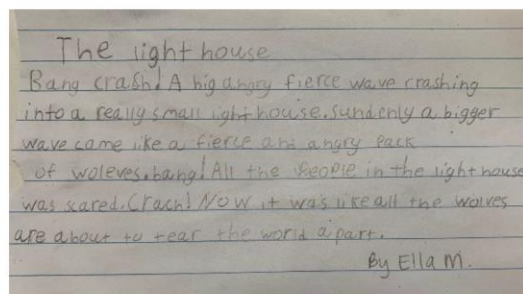 The light house
Bang crash! A big angry fierce wave crashing
into a really small light house. sundenly a bigger
wave come like a fierce and angry pack
of woleves. bang! All the people in the light house
was scared. Crach! Now it was like all the wolves
are about to tear the world apart.
By Ella M.